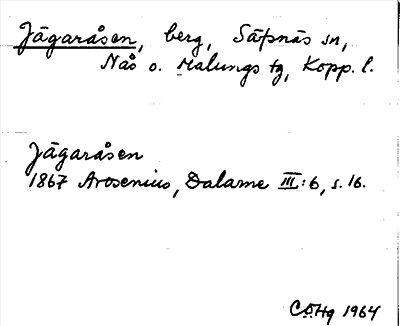 Jägaråsen, berg, Säfsnäs sn,
Nås o. Malungs tg, Kopp. l.
Jägaråsen
1867 Arosenius, Dalarne III:6, s. 16.
CÖHg 1964